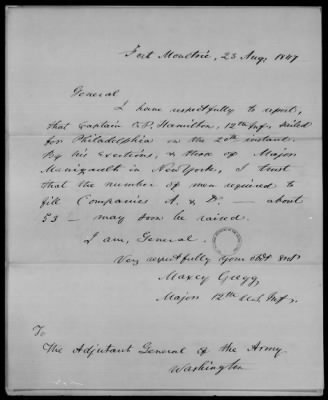 Fort Moultrie, 23 Aug, 1847
General
I have respectfully to report,
that Captain P. Hamilton, 12th Inf., sailed
for Philadelphia on the 20th instant.
By his exertions, & those of Major
Manigault in New York, I trust
that the number of men required to
fill Companies A. & — about
53 — may soon be raised.
I am, General.
Very respectfully your obdt servt
Maxcy Gregg
Major 12th U.S. Inf.
To
The Adjutant General of the Army
Washington